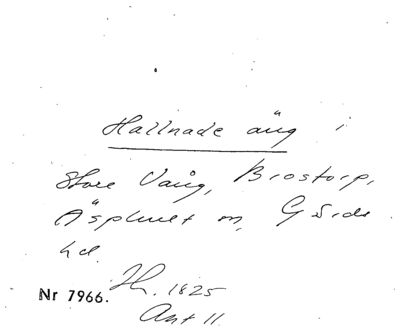 Hallnade äng i
Store Vång, Brostorp,
Äsphult sn, Gärds
hd.
Nr 7966. Jh. 1825
Akt 11